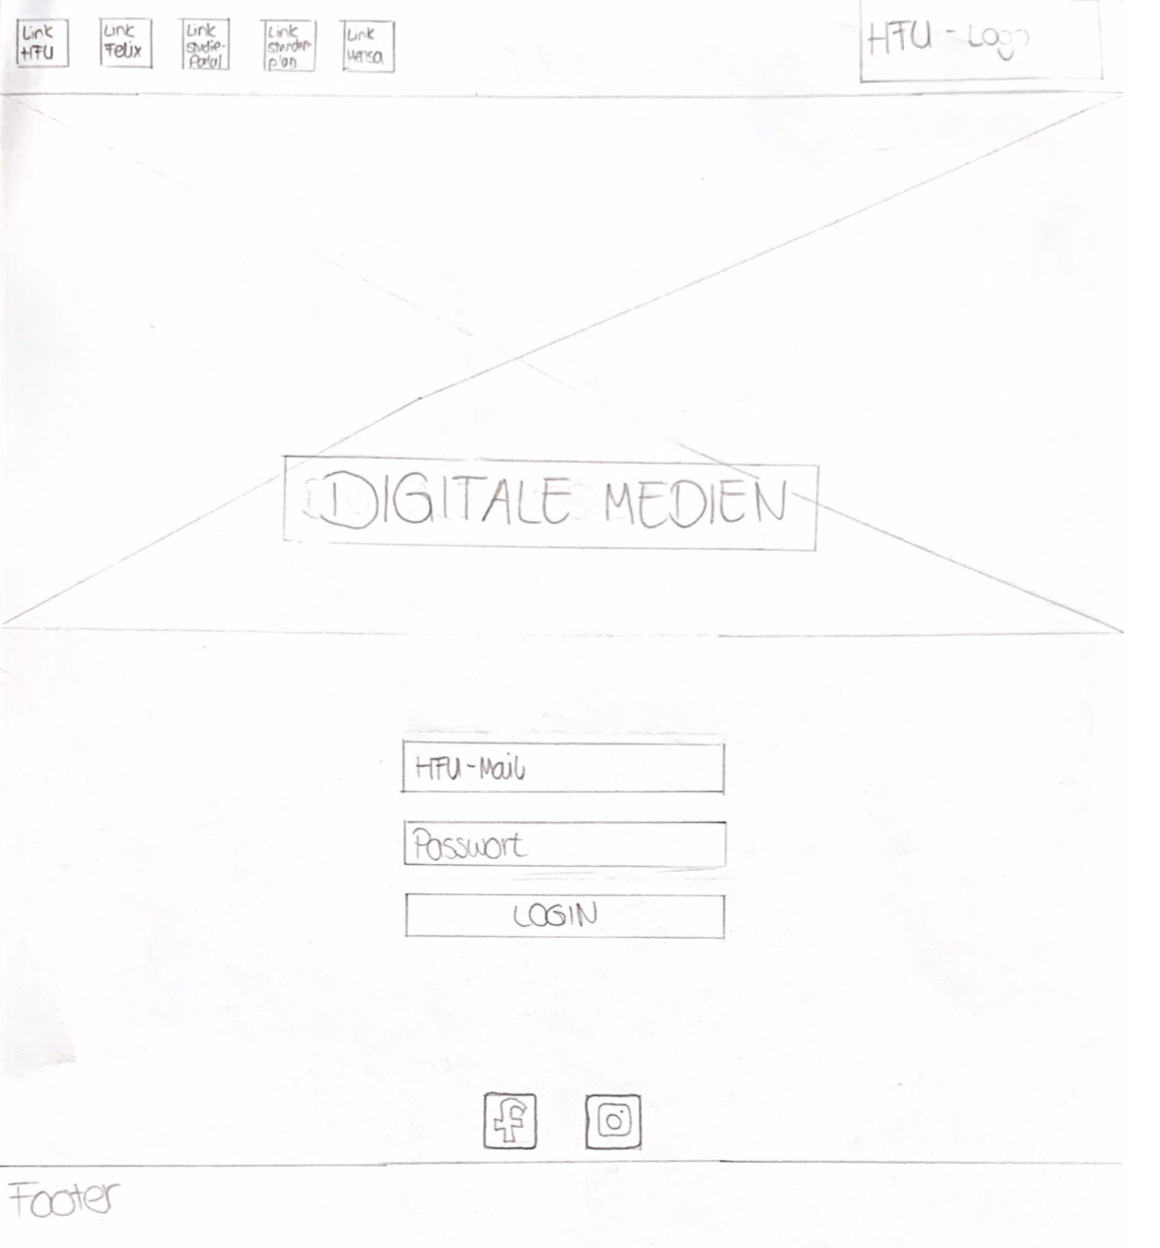 Link
HFU
Link
Felix
Link
Studie-
Portal
Link
stunden
plan
Link
versa
HFU - Logo
DIGITALE MEDIEN
HFU-Mail
Passwort
LOGIN
f
Footer